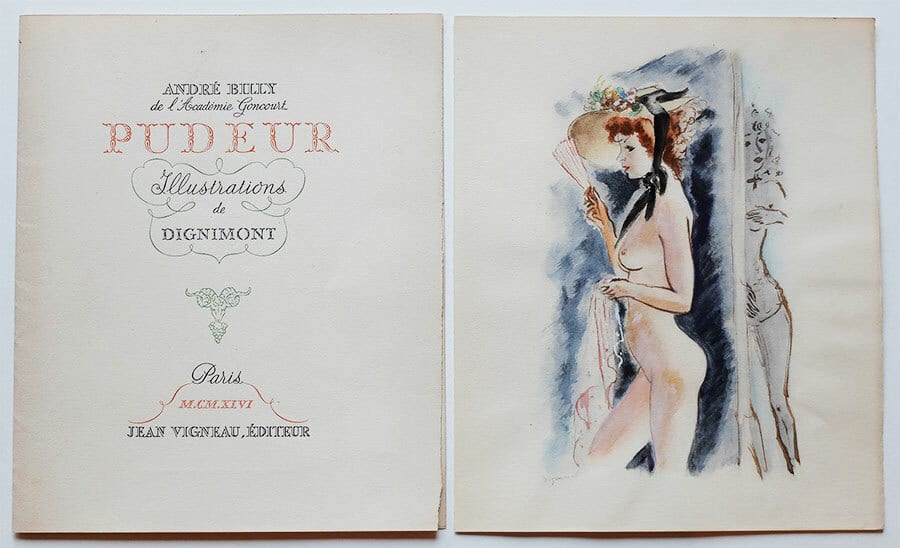 ANDRÉ BILLY
de l'Académie Goncourt
PUDEUR
Illustrations
de
DIGNIMONT
Paris
M.CM.XLVI
JEAN VIGNEAU, ÉDITEUR